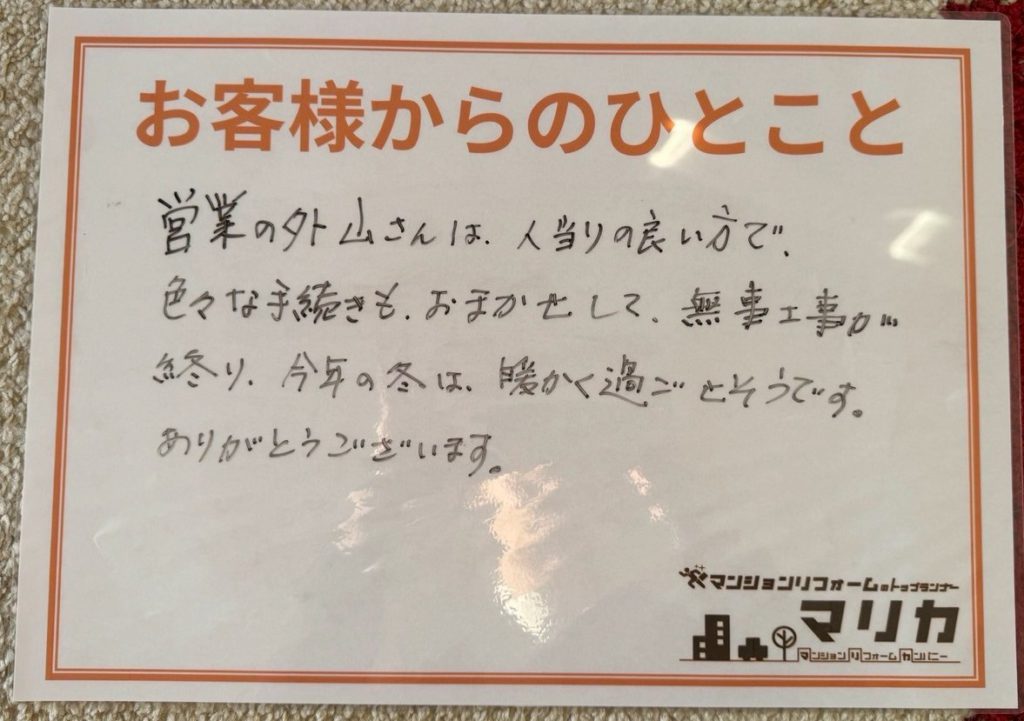 お客様からのひとこと
営業の外山さんは、人当りの良い方で、
色々な手続きも、おまかせして、無事工事が
終り、今年の冬は、暖かく過ごせそうです。
ありがとうございます。
マンションリフォームのトップランナー
マリカ
マンションリフォームカンパニー